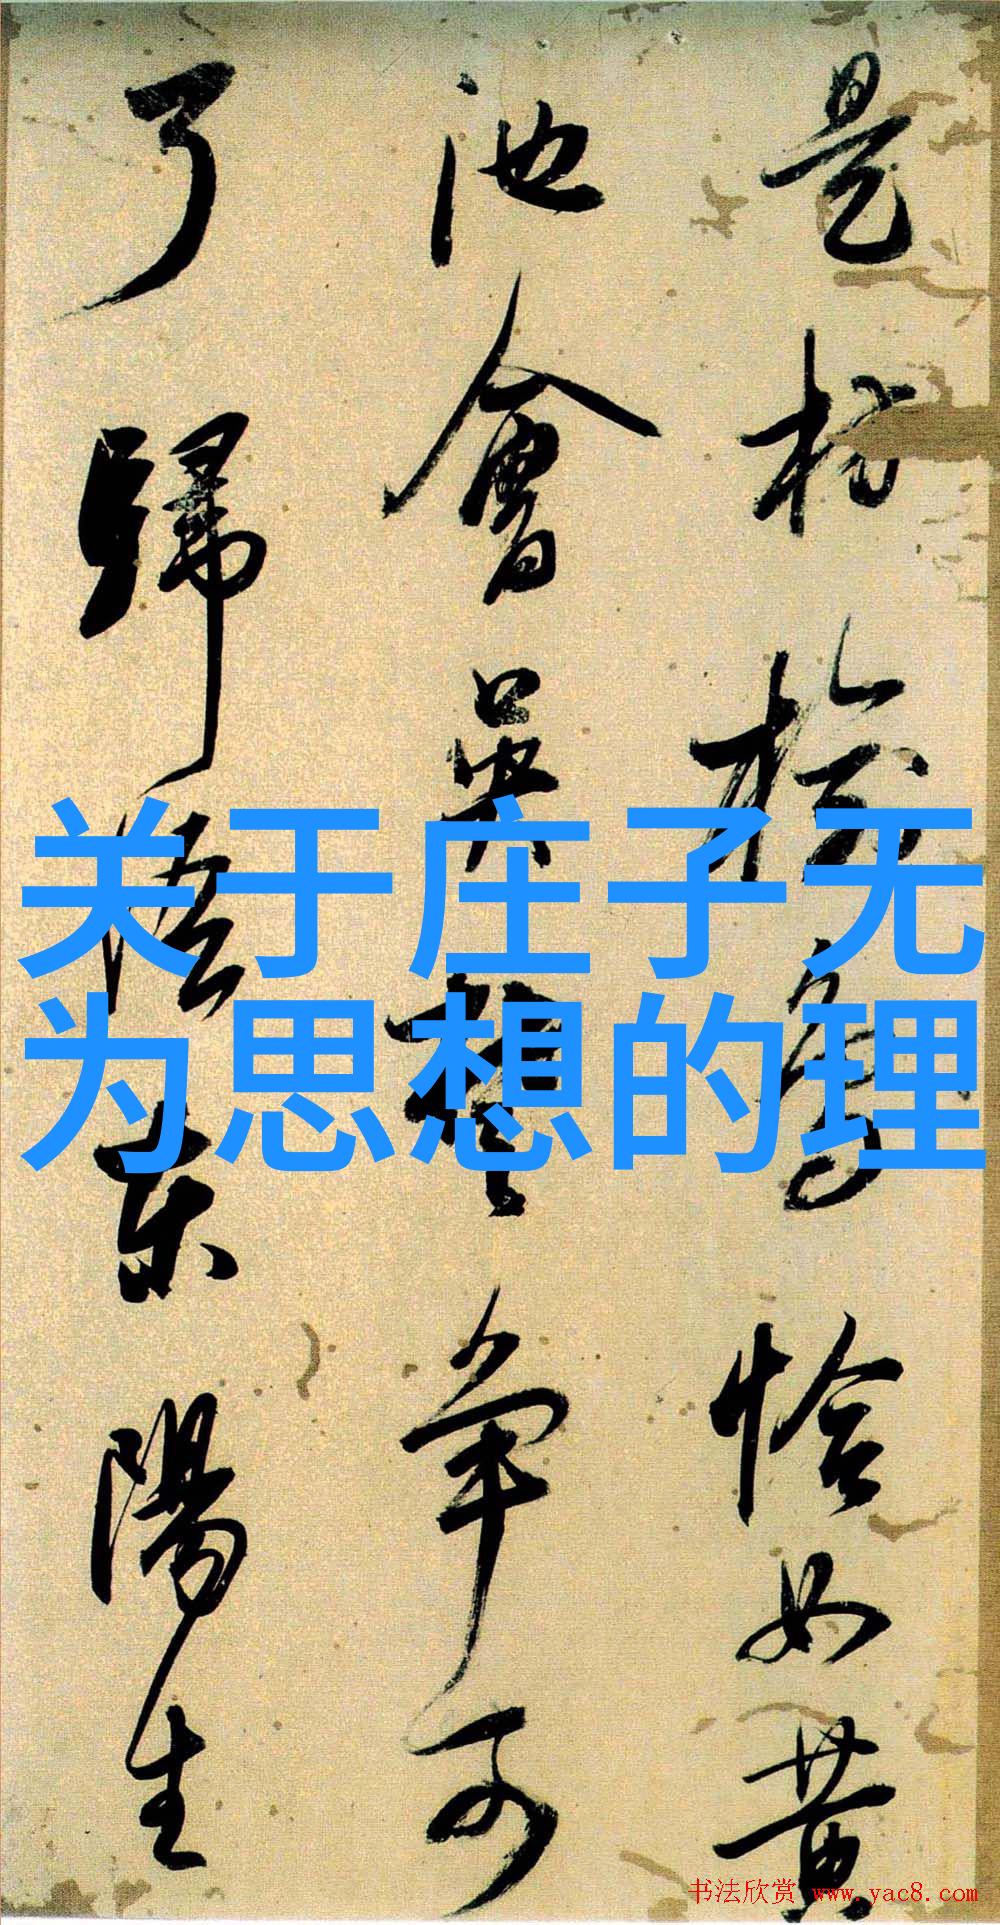 是恰如黄
池會吴楚争
了歸陽生
关于庄子无
为思想的理
书法欣赏 www.yac8.com